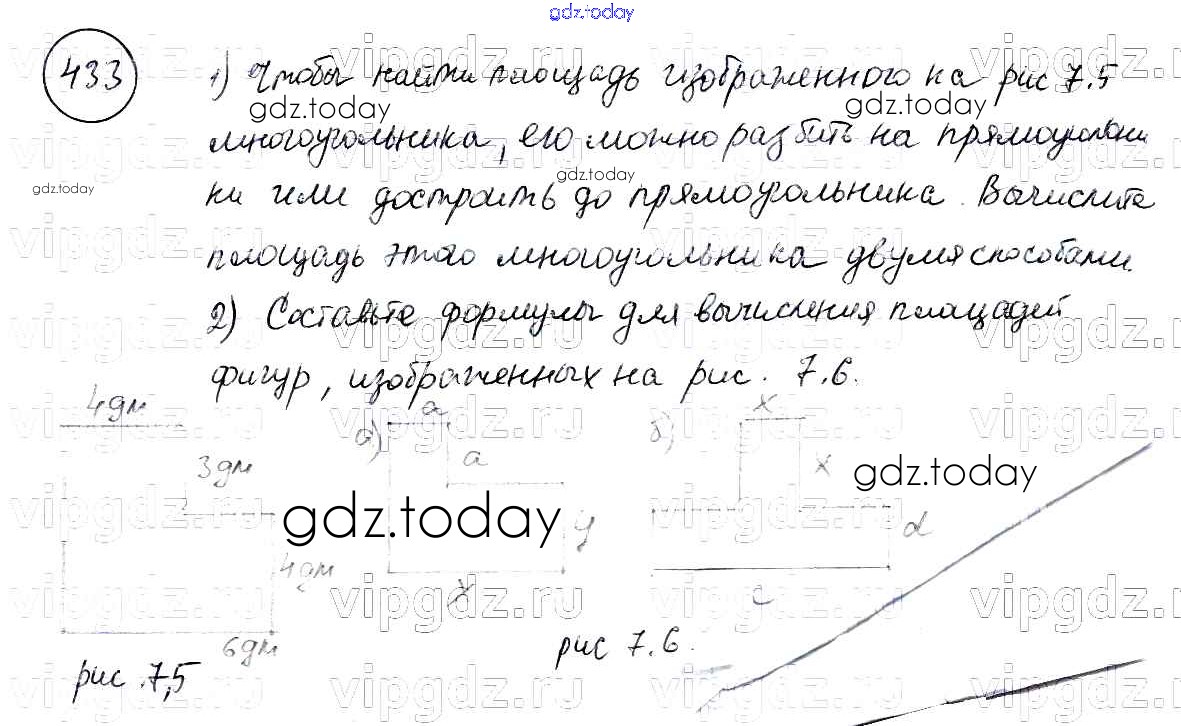 gdz.today
433
1) Чтобы найти площадь изображенного на рис 7.5
многоугольника, его можно разбить на прямоугольни
ки или достроить до прямоугольника. Вычислите
площадь этого многоугольника двумя способами.
2) Составьте формулы для вычисления площадей
фигур, изображенных на рис. 7.6.
4дм
3дм
4дм
6дм
рис. 7,5
а)
a
a
y
x
б)
x
x
d
c
рис 7.6.
gdz.today
gdz.today
gdz.today
gdz.today
gdz.today
gdz.today
vipgdz.ru